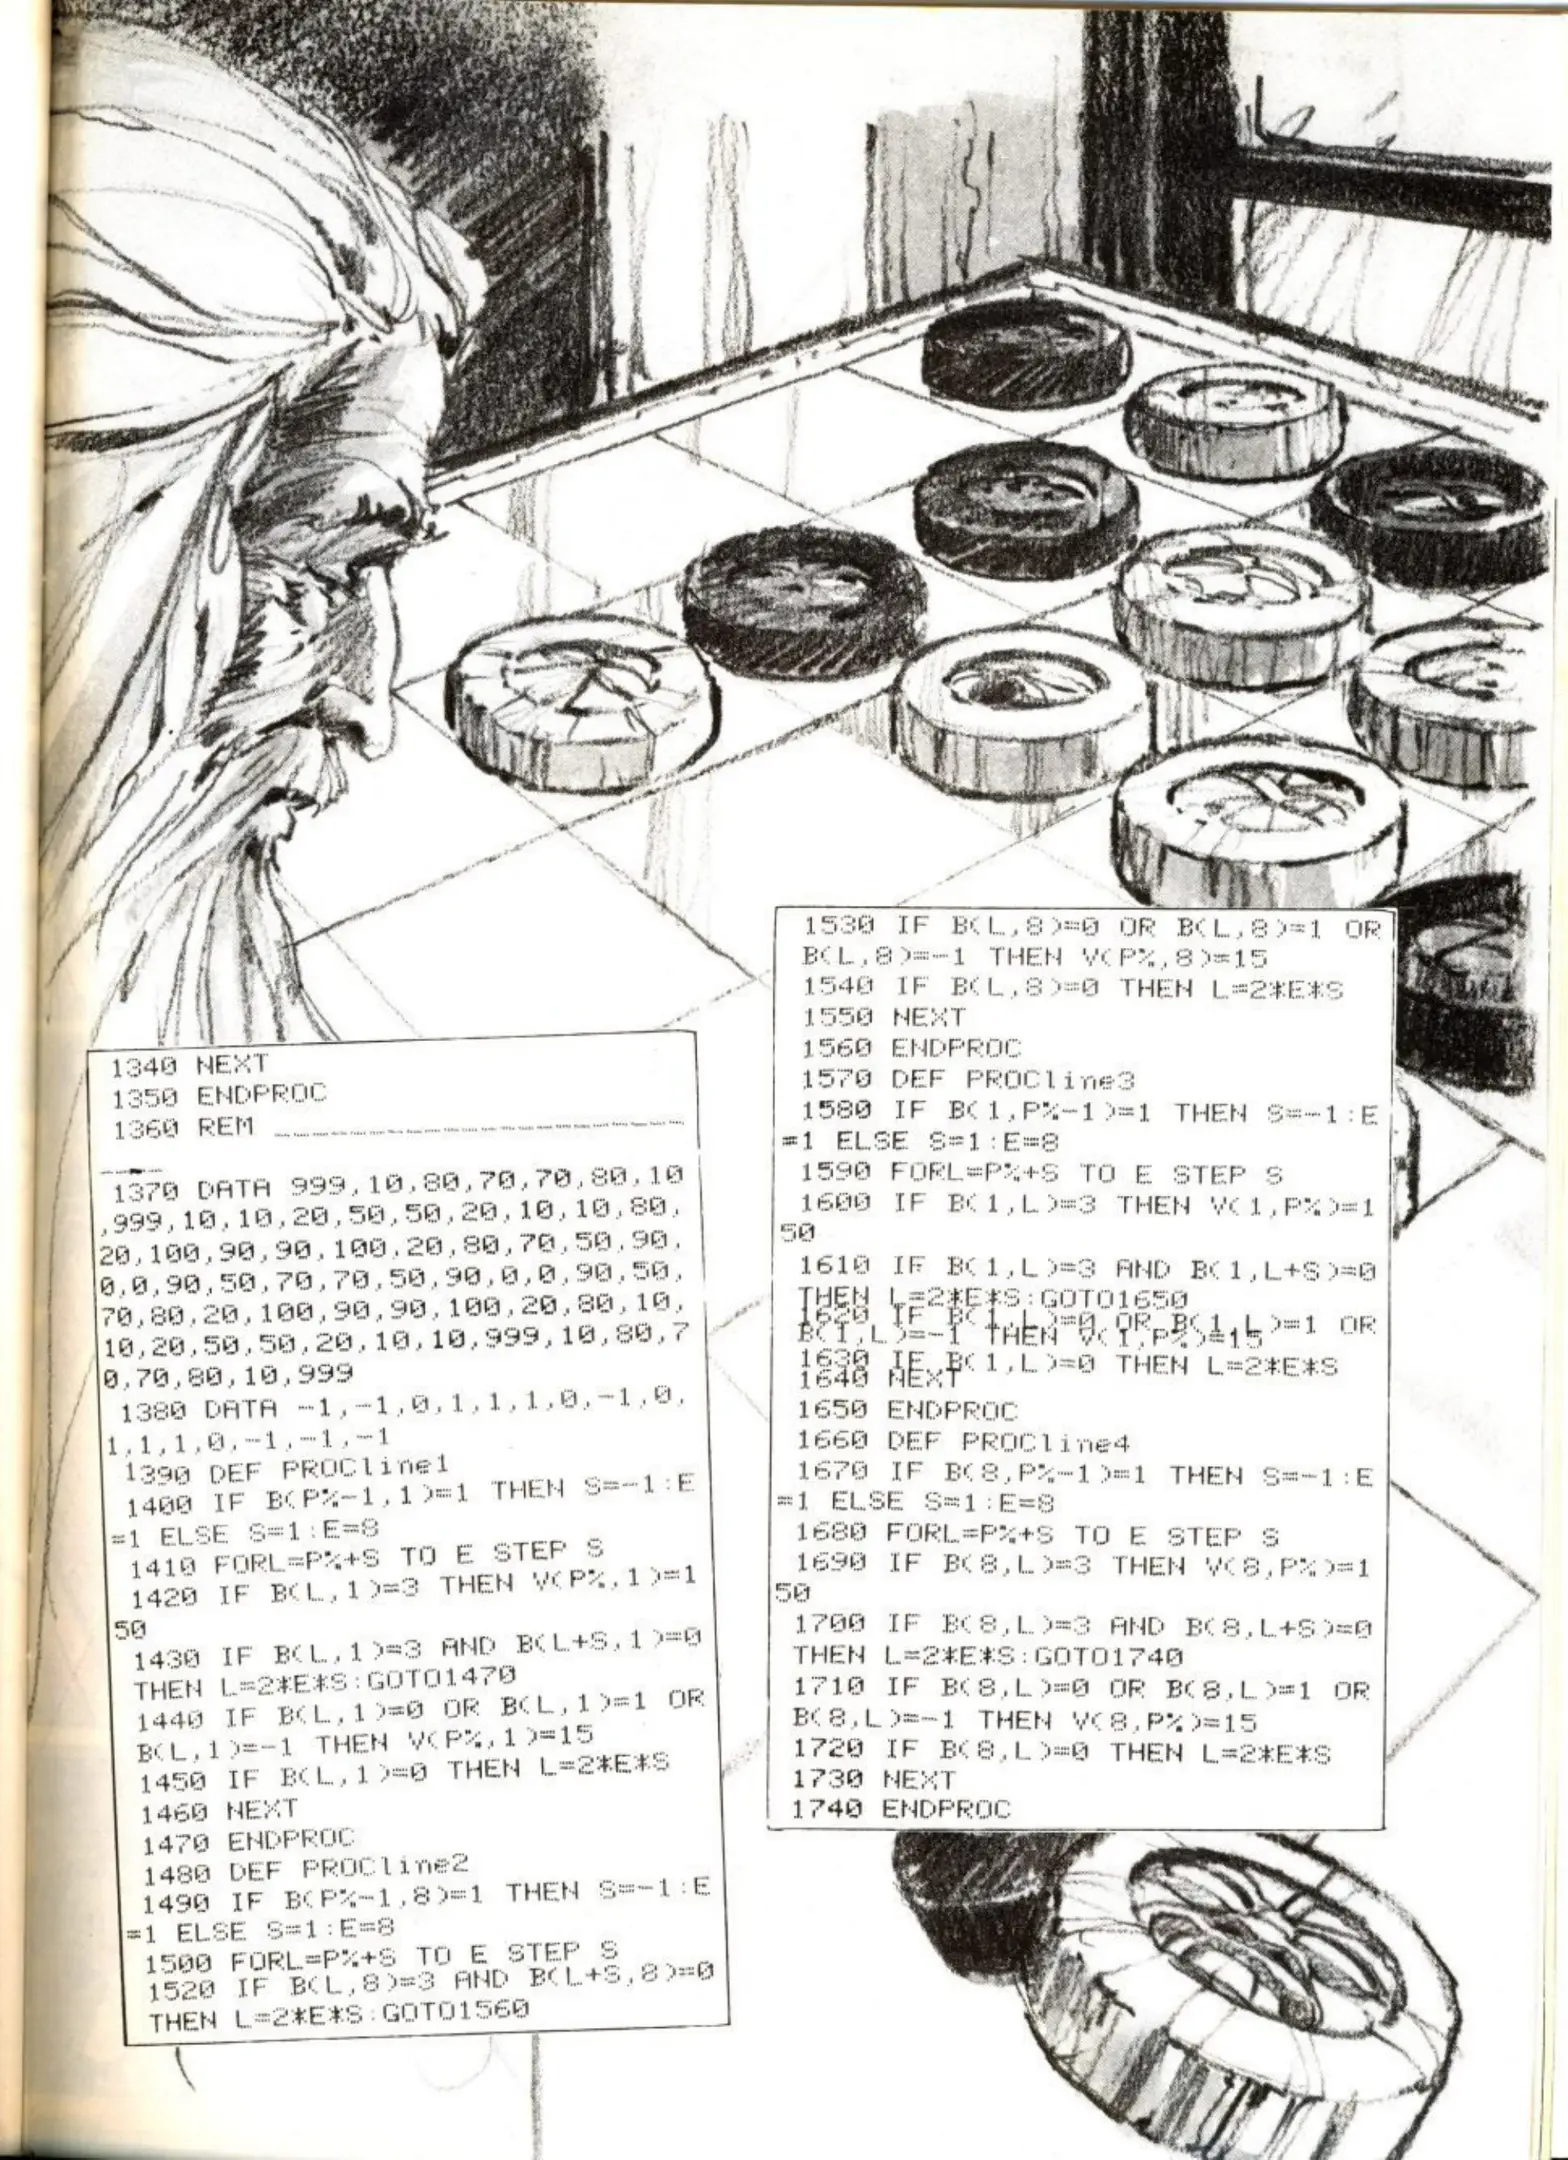 1340 NEXT
1350 ENDPROC
1360 REM ------------------------------
----
1370 DATA 999,10,80,70,70,80,10
,999,10,10,20,50,50,20,10,10,80,
20,100,90,90,100,20,80,70,50,90,
0,0,90,50,70,70,50,90,0,0,90,50,
70,80,20,100,90,90,100,20,80,10,
10,20,50,50,20,10,10,999,10,80,7
0,70,80,10,999
1380 DATA -1,-1,0,1,1,1,0,-1,0,
1,1,1,0,-1,-1,-1
1390 DEF PROCline1
1400 IF B(P%-1,1)=1 THEN S=-1:E
=1 ELSE S=1:E=8
1410 FORL=P%+S TO E STEP S
1420 IF B(L,1)=3 THEN V(P%,1)=1
50
1430 IF B(L,1)=3 AND B(L+S,1)=0
THEN L=2*E*S:GOTO1470
1440 IF B(L,1)=0 OR B(L,1)=1 OR
B(L,1)=-1 THEN V(P%,1)=15
1450 IF B(L,1)=0 THEN L=2*E*S
1460 NEXT
1470 ENDPROC
1480 DEF PROCline2
1490 IF B(P%-1,8)=1 THEN S=-1:E
=1 ELSE S=1:E=8
1500 FORL=P%+S TO E STEP S
1520 IF B(L,8)=3 AND B(L+S,8)=0
THEN L=2*E*S:GOTO1560
1530 IF B(L,8)=0 OR B(L,8)=1 OR
B(L,8)=-1 THEN V(P%,8)=15
1540 IF B(L,8)=0 THEN L=2*E*S
1550 NEXT
1560 ENDPROC
1570 DEF PROCline3
1580 IF B(1,P%-1)=1 THEN S=-1:E
=1 ELSE S=1:E=8
1590 FORL=P%+S TO E STEP S
1600 IF B(1,L)=3 THEN V(1,P%)=1
50
1610 IF B(1,L)=3 AND B(1,L+S)=0
THEN L=2*E*S:GOTO1650
1620 IF B(1,L)=0 OR B(1,L)=1 OR
B(1,L)=-1 THEN V(1,P%)=15
1630 IF B(1,L)=0 THEN L=2*E*S
1640 NEXT
1650 ENDPROC
1660 DEF PROCline4
1670 IF B(8,P%-1)=1 THEN S=-1:E
=1 ELSE S=1:E=8
1680 FORL=P%+S TO E STEP S
1690 IF B(8,L)=3 THEN V(8,P%)=1
50
1700 IF B(8,L)=3 AND B(8,L+S)=0
THEN L=2*E*S:GOTO1740
1710 IF B(8,L)=0 OR B(8,L)=1 OR
B(8,L)=-1 THEN V(8,P%)=15
1720 IF B(8,L)=0 THEN L=2*E*S
1730 NEXT
1740 ENDPROC